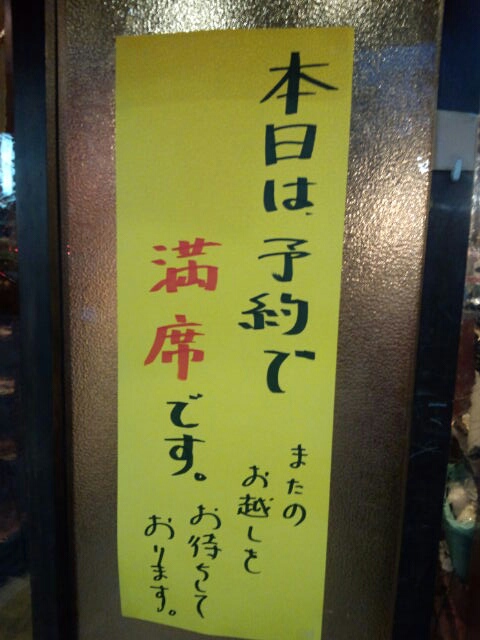 本日は、予約で
満席です。
またの
お越しを
お待ちして
おります。